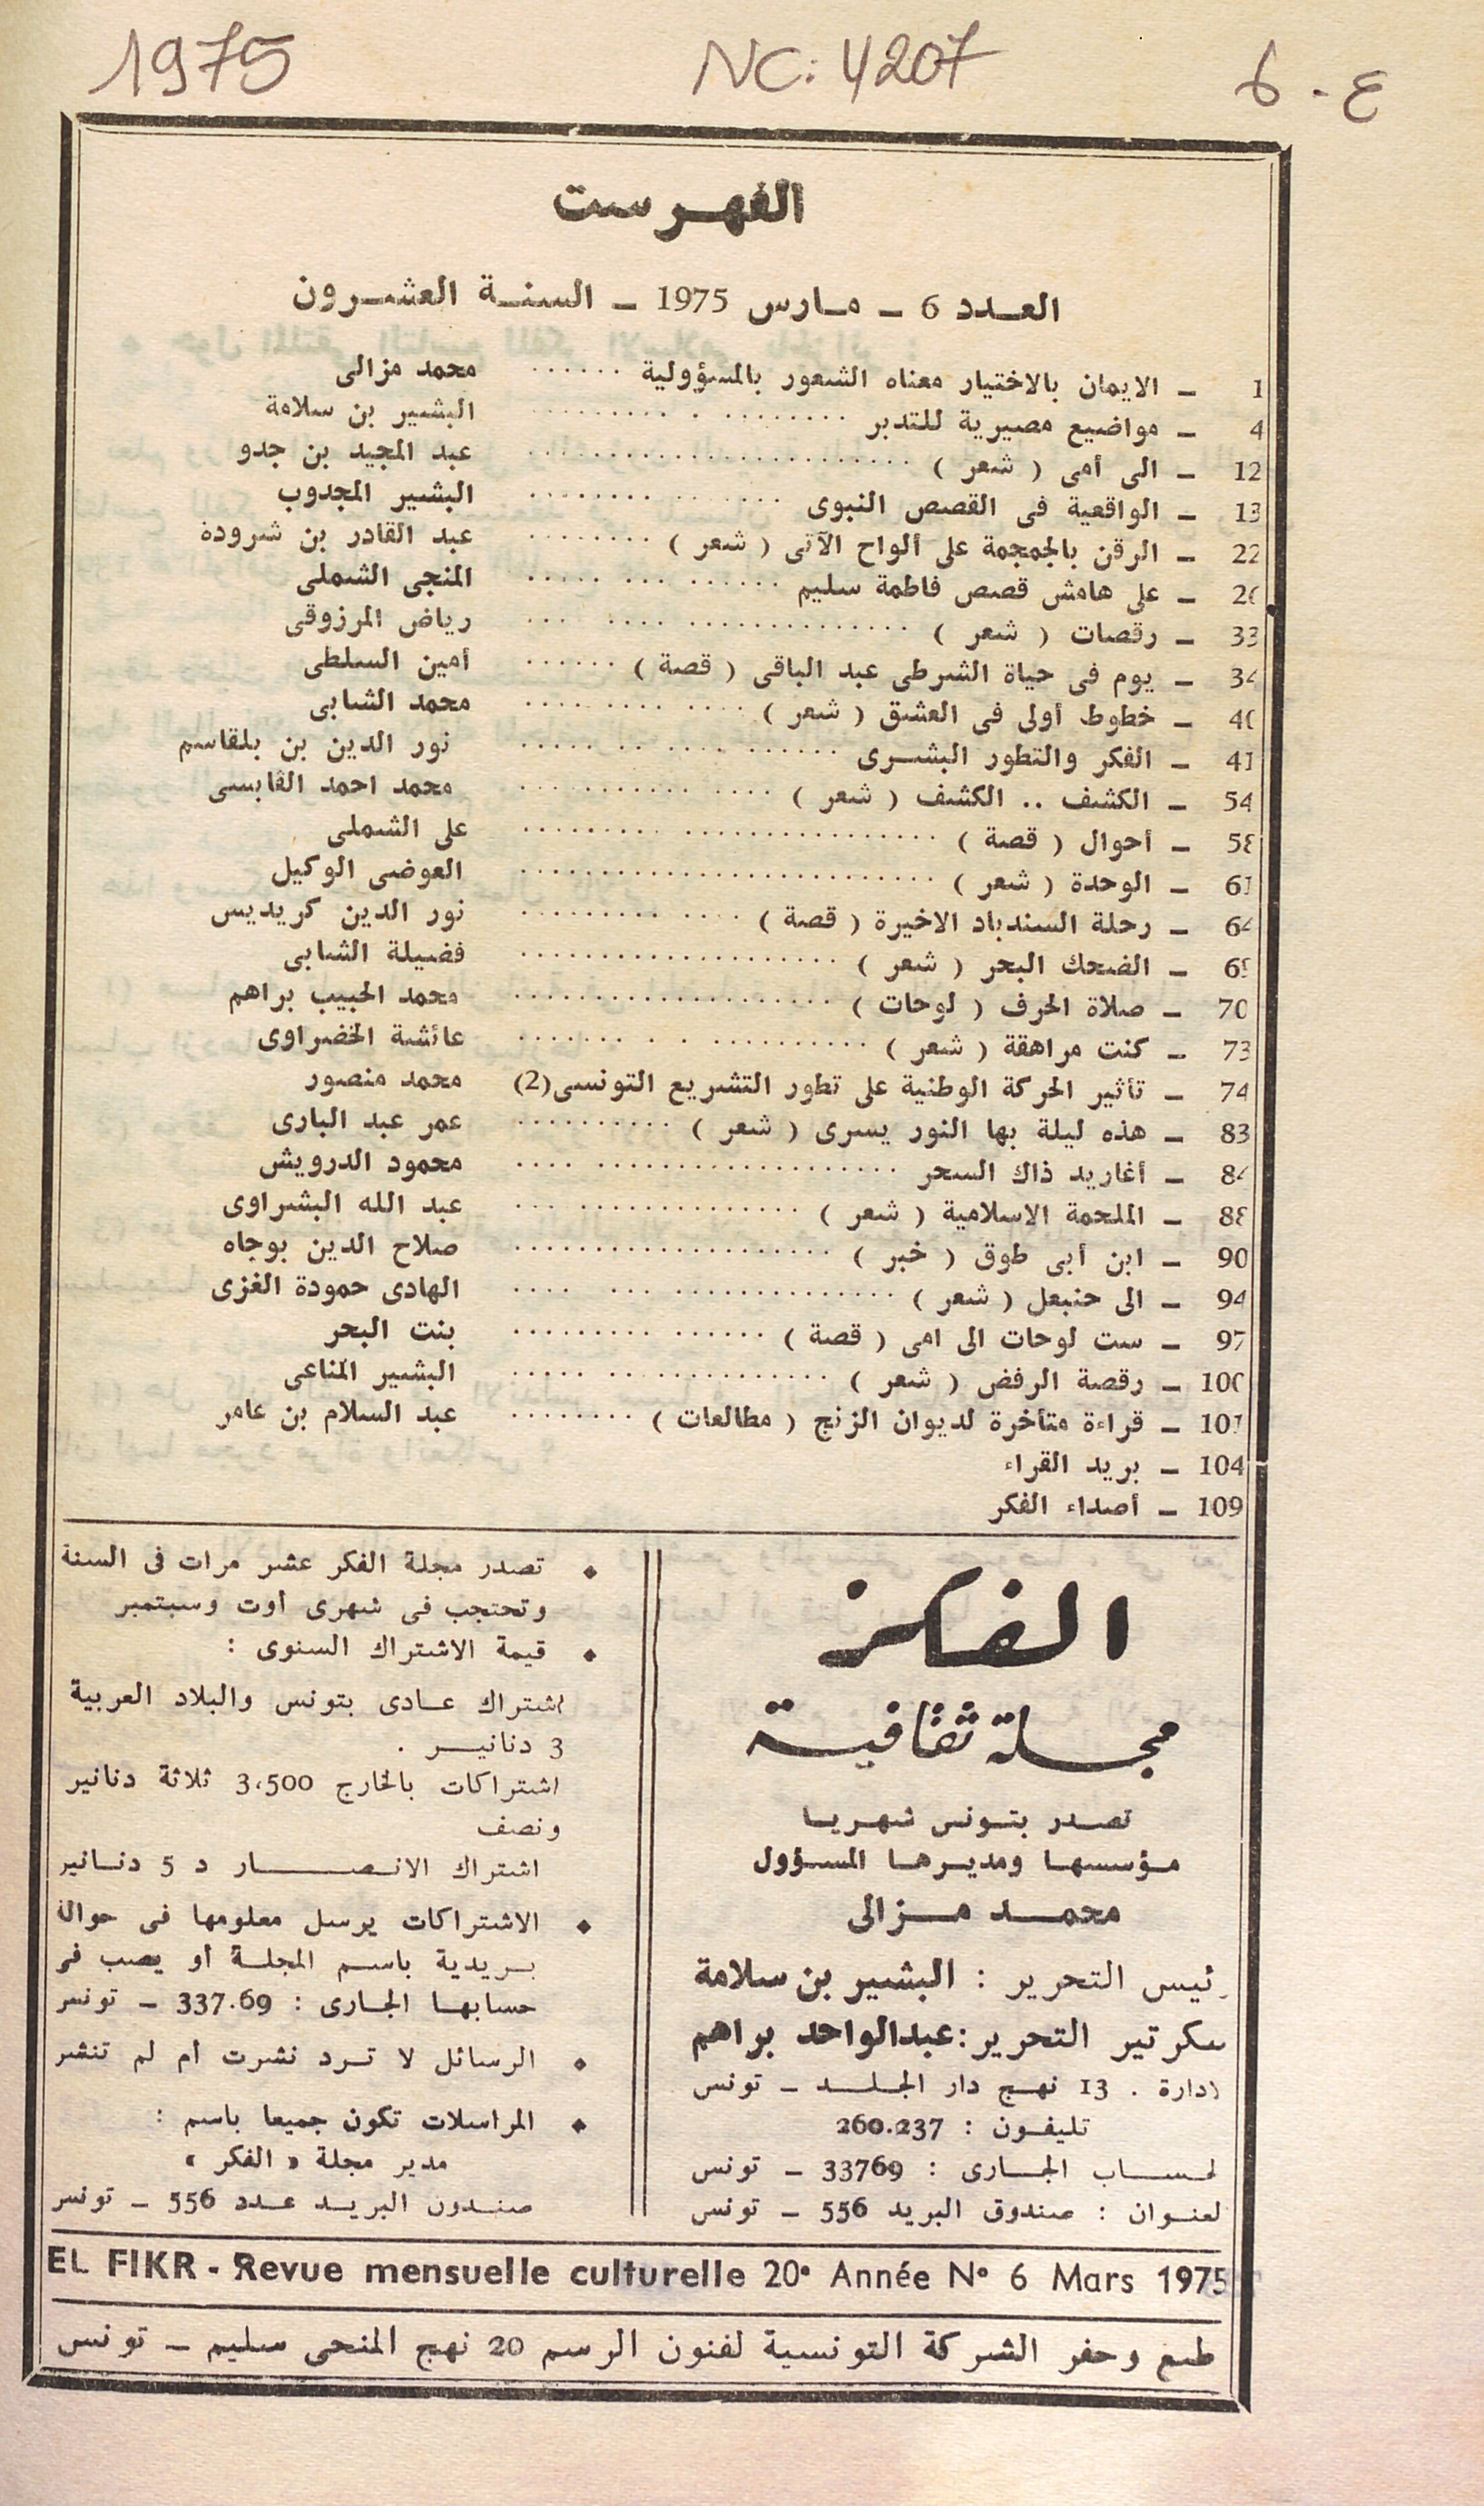 1975 NC: 4207 ع - 6
الفهرست
العدد 6 ـ مارس 1975 ـ السنة العشرون
1 ـ الايمان بالاختيار معناه الشعور بالمسؤولية ...... محمد مزالى
4 ـ مواضيع مصيرية للتدبر ...... البشير بن سلامة
12 ـ الى أمى ( شعر ) ...... عبد المجيد بن جدو
13 ـ الواقعية فى القصص النبوى ...... البشير المجدوب
22 ـ الرقن بالجمجمة على ألواح الآتى ( شعر ) ...... عبد القادر بن شرودة
26 ـ على هامش قصص فاطمة سليم ...... المنجى الشملى
33 ـ رقصات ( شعر ) ...... رياض المرزوقى
34 ـ يوم فى حياة الشرطى عبد الباقى ( قصة ) ...... أمين السلطى
40 ـ خطوط أولى فى العشق ( شعر ) ...... محمد الشابى
41 ـ الفكر والتطور البشرى ...... نور الدين بن بلقاسم
54 ـ الكشف .. الكشف ( شعر ) ...... محمد احمد القابسى
58 ـ أحوال ( قصة ) ...... على الشملى
61 ـ الوحدة ( شعر ) ...... العوضى الوكيل
64 ـ رحلة السندباد الاخيرة ( قصة ) ...... نور الدين كريديس
69 ـ الضحك البحر ( شعر ) ...... فضيلة الشابى
70 ـ صلاة الحرف ( لوحات ) ...... محمد الحبيب براهم
73 ـ كنت مراهقة ( شعر ) ...... عائشة الخضراوى
74 ـ تأثير الحركة الوطنية على تطور التشريع التونسى (2) محمد منصور
83 ـ هذه ليلة بها النور يسرى ( شعر ) ...... عمر عبد البارى
84 ـ أغاريد ذاك السحر ...... محمود الدرويش
88 ـ الملحمة الاسلامية ( شعر ) ...... عبد الله البشراوى
90 ـ ابن أبى طوق ( خبر ) ...... صلاح الدين بوجاه
94 ـ الى حنبعل ( شعر ) ...... الهادى حمودة الغزى
97 ـ ست لوحات الى امى ( قصة ) ...... بنت البحر
100 ـ رقصة الرفض ( شعر ) ...... البشير المناعى
101 ـ قراءة متأخرة لديوان الزنج ( مطالعات ) ...... عبد السلام بن عامر
104 ـ بريد القراء
109 ـ أصداء الفكر
الفكر
مجلة ثقافية
تصدر بتونس شهريا
مؤسسها ومديرها المسؤول
محمد مزالى
رئيس التحرير : البشير بن سلامة
سكرتير التحرير : عبدالواحد براهم
لادارة . 13 نهج دار الجلد ـ تونس
تليفون : 260.237
لحساب الجارى : 33769 ـ تونس
لعنوان : صندوق البريد 556 ـ تونس
♦ تصدر مجلة الفكر عشر مرات فى السنة
وتحتجب فى شهرى أوت وسبتمبر
♦ قيمة الاشتراك السنوى :
اشتراك عادى بتونس والبلاد العربية
3 دنانير .
اشتراكات بالخارج 3،500 ثلاثة دنانير
ونصف
اشتراك الانصار د 5 دنانير
♦ الاشتراكات يرسل معلومها فى حوالة
بريدية باسم المجلة أو يصب فى
حسابها الجارى : 337.69 ـ تونس
♦ الرسائل لا ترد نشرت أم لم تنشر
♦ المراسلات تكون جميعا باسم :
مدير مجلة « الفكر »
صندوق البريد عدد 556 ـ تونس
EL FIKR - Revue mensuelle culturelle 20e Année N° 6 Mars 1975
طبع وحفر الشركة التونسية لفنون الرسم 20 نهج المنجى سليم ـ تونس